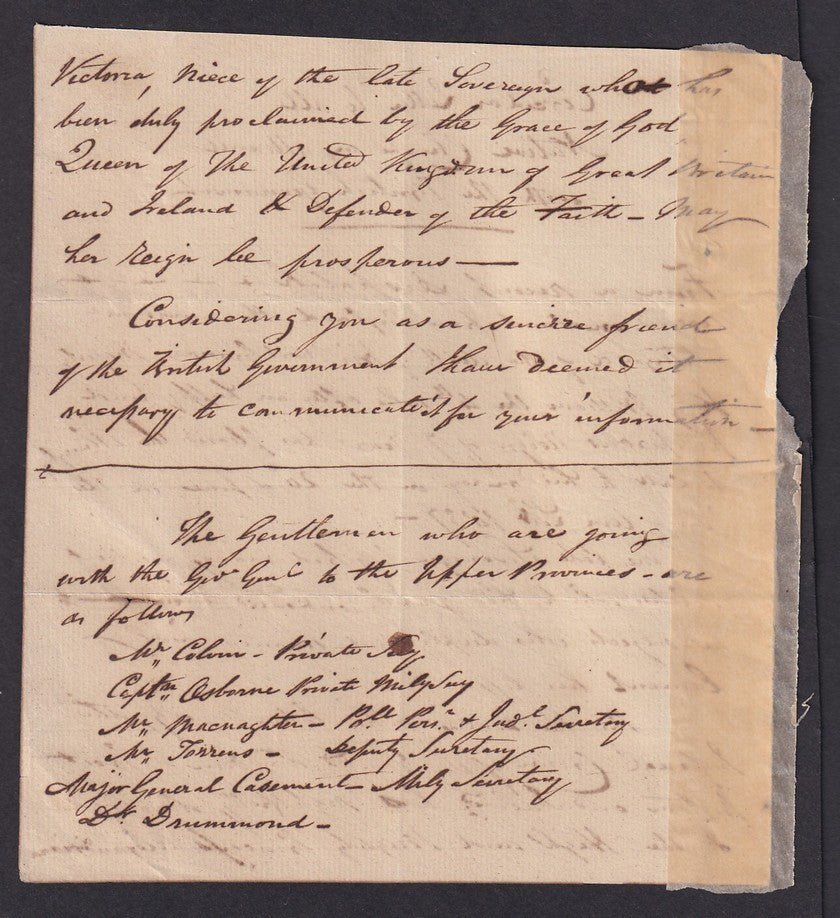 Victoria, Niece of the late Sovereign who has
been duly proclaimed by the Grace of God
Queen of The United Kingdom of Great Britain
and Ireland & Defender of the Faith – May
her reign be prosperous —
Considering you as a sincere friend
of the British Government I have deemed it
necessary to communicate it for your information –
The Gentlemen who are going
with the Govr Genl to the Upper Provinces – are
as follows
Mr Colvin – Private Secy
Captn Osborne Private Mily Secy
Mr Macnaghten – Poll Pern & Judl Secretary
Mr Torrens – Deputy Secretary
Major General Casement – Mily Secretary
Dr Drummond –